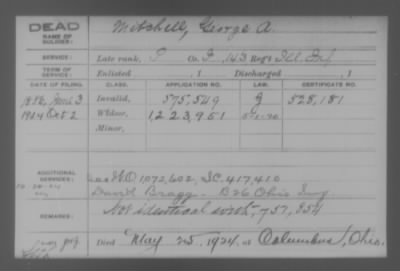 DEAD
NAME OF SOLDIER: Mitchell, George A.
SERVICE: Late rank, P Co. I, 143 Reg't Ill Inf
TERM OF SERVICE: Enlisted , 1 Discharged , 1
DATE OF FILING. CLASS. APPLICATION NO. LAW. CERTIFICATE NO.
1886, June 3 Invalid, 575,549 G 528,181
1924 Oct 2 Widow, 1,223,951
Minor,
ADDITIONAL SERVICES: WO 1,072,602, SC. 417,410
David Bragg - B 26 Ohio Inf
REMARKS: Not identical with, 757,854
Died May 25, 1924, at Columbus, Ohio.